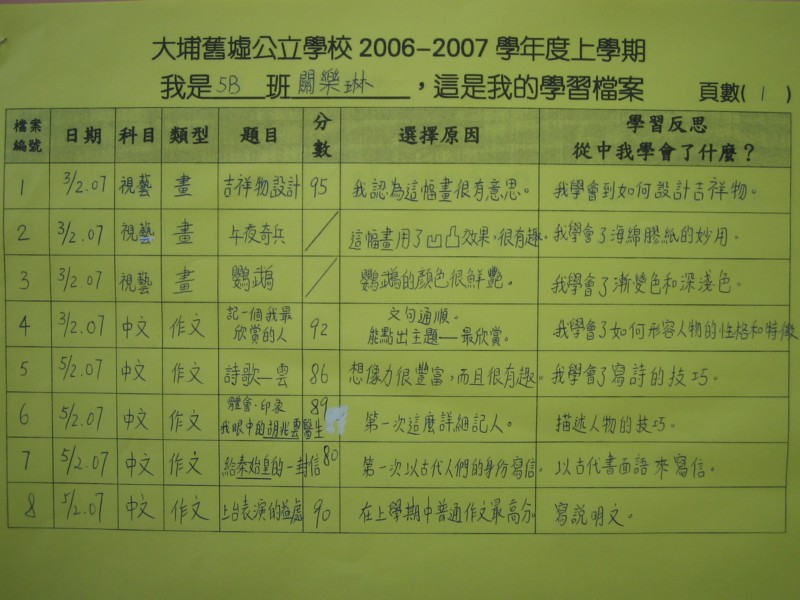 大埔舊墟公立學校 2006-2007 學年度上學期
我是 5B 班 關樂琳 ，這是我的學習檔案 頁數( 1 )
檔案編號 日期 科目 類型 題目 分數 選擇原因 學習反思 從中我學會了什麼？
1 3/2.07 視藝 畫 吉祥物設計 95 我認為這幅畫很有意思。 我學會到如何設計吉祥物。
2 3/2.07 視藝 畫 午夜奇兵 / 這幅畫用了凹凸效果，很有趣。 我學會了海綿膠紙的妙用。
3 3/2.07 視藝 畫 鸚鵡 / 鸚鵡的顏色很鮮艷。 我學會了漸變色和深淺色。
4 3/2.07 中文 作文 記一個我最欣賞的人 92 文句通順。能點出主題—最欣賞。 我學會了如何形容人物的性格和特徵
5 5/2.07 中文 作文 詩歌—雲 86 想像力很豐富，而且很有趣。 我學會了寫詩的技巧。
6 5/2.07 中文 作文 體會·印象 我眼中的胡兆雲醫生 89 第一次這麼詳細記人。 描述人物的技巧。
7 5/2.07 中文 作文 給秦始皇的一封信 80 第一次以古代人們的身份寫信。 以古代書面語來寫信。
8 5/2.07 中文 作文 上台表演的益處 90 在上學期中普通作文最高分。 寫說明文。